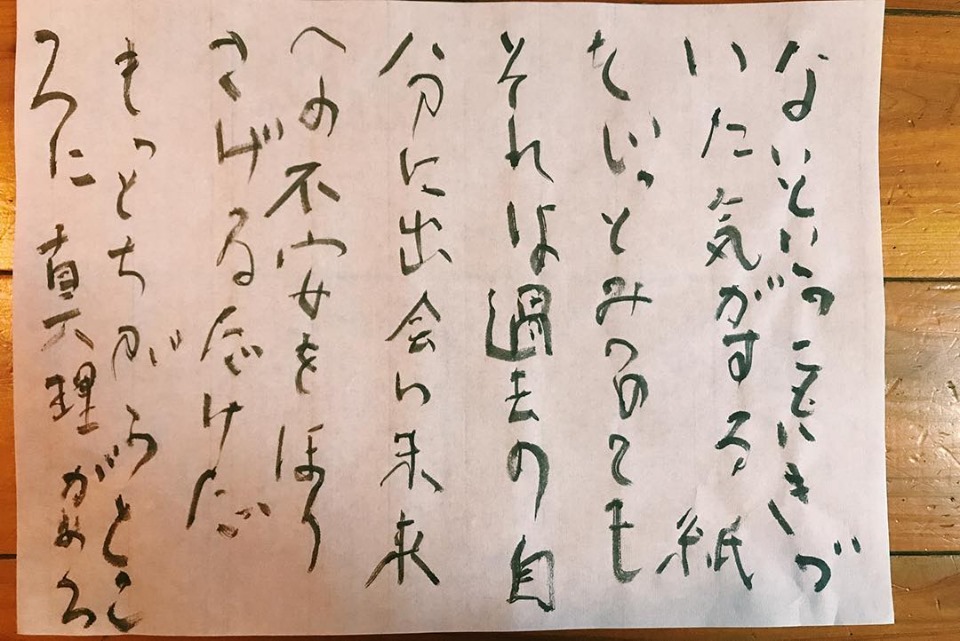 ないということにきづ
いた気がする 紙
をじっとみつめても
それは過去の自
分に出会い未来
への不安をほり
さげるだけだ
もっとちがうとこ
ろに真理がある